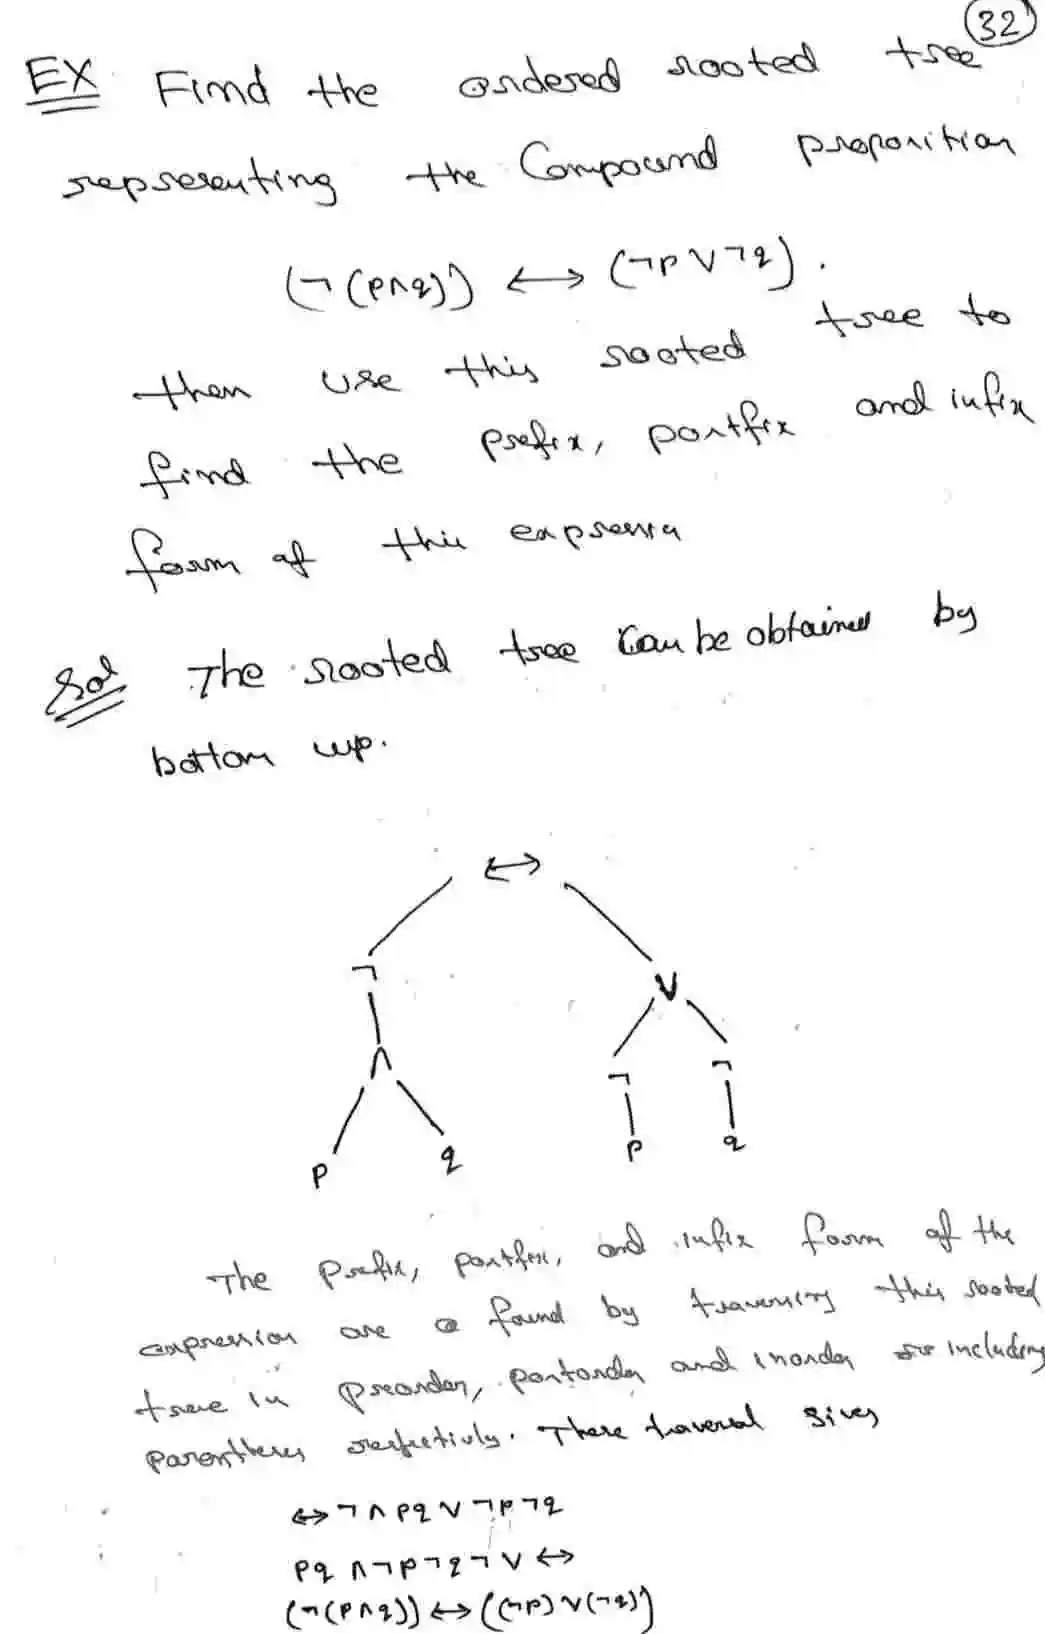 32
EX Find the ordered rooted tree
representing the Compound proposition
(¬(p∧q)) ↔ (¬p∨¬q).
then use this rooted tree to
find the prefix, postfix and infix
form of this expression
Sol The rooted tree can be obtained by
bottom up.
↔
¬ ∨
∧ ¬ ¬
p q p q
The prefix, postfix, and infix form of the
expression are found by traversing this rooted
tree in preorder, postorder and inorder including
parentheses respectively. These traversal gives
↔¬∧pq∨¬p¬q
pq∧¬p¬q¬∨↔
(¬(p∧q))↔((¬p)∨(¬q))